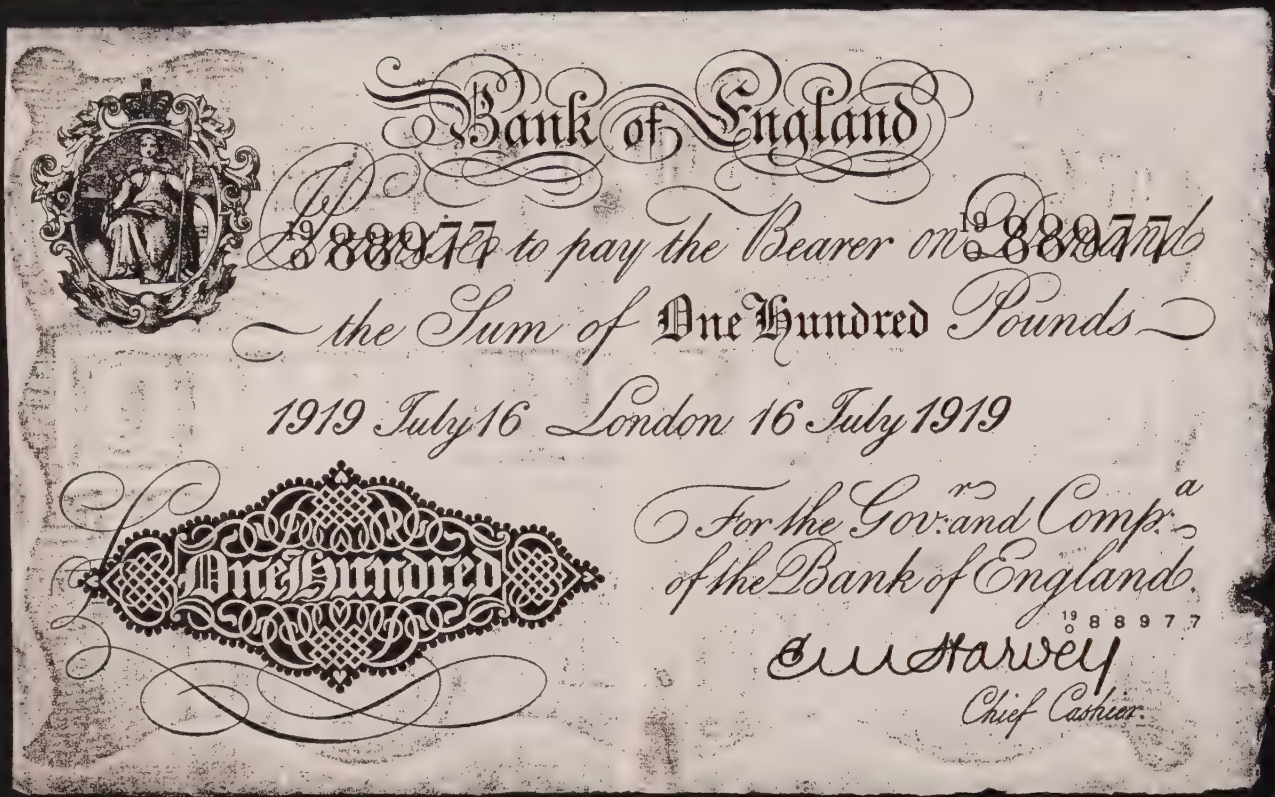 Bank of England
19 O 88977 19 O 88977
Promise to pay the Bearer on Demand
the Sum of One Hundred Pounds
1919 July 16 London 16 July 1919
One Hundred
For the Gov.r and Comp.a
of the Bank of England.
19 O 88977
E M Harvey
Chief Cashier.